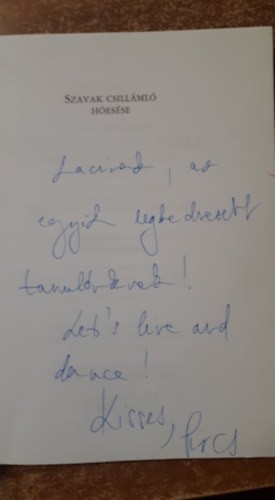 SZAVAK CSILLÁMLÓ
HÓESÉSE
Lacinak, az
egyik legkedvesebb
tanulómnak!
Let's live and
dance!
Kisses,